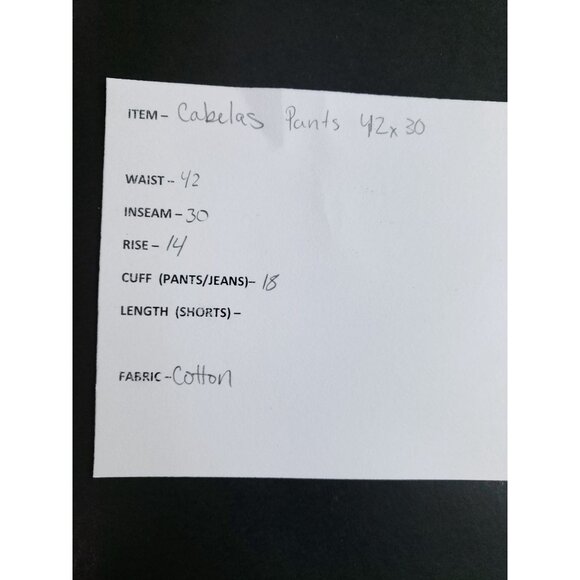 ITEM – Cabelas Pants 42x30
WAIST – 42
INSEAM – 30
RISE – 14
CUFF (PANTS/JEANS)– 18
LENGTH (SHORTS) –
FABRIC – Cotton